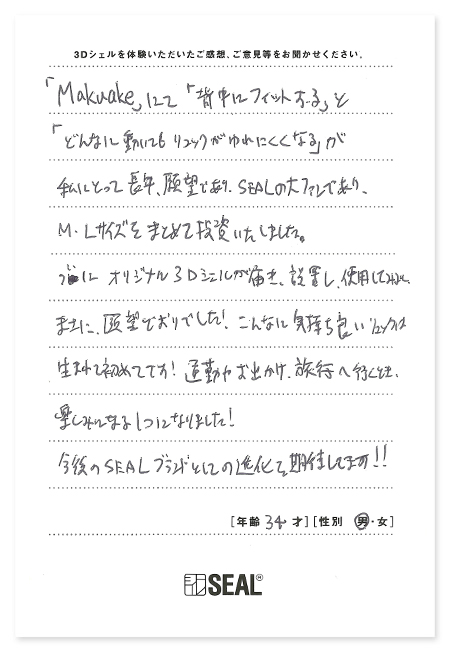 3Dシェルを体験いただいたご感想、ご意見等をお聞かせください。
「Makuake」にて「背中にフィットする」と
「どんなに動いても リュックがゆれにくくなる」が
私にとって長年、願望であり、SEALの大ファンであり、
M・Lサイズをまとめて投資いたしました。
ついに オリジナル3Dシェルが届き、設置し、使用してみると、
まさに、願望どおりでした！こんなに気持ち良いリュックは
生まれて初めてです！通勤やお出かけ、旅行へ行くとき、
楽しみになる1つになりました！
今後のSEALブランドとしての進化を期待してます!!
[年齢 34 才] [性別 男・女]
SEAL®